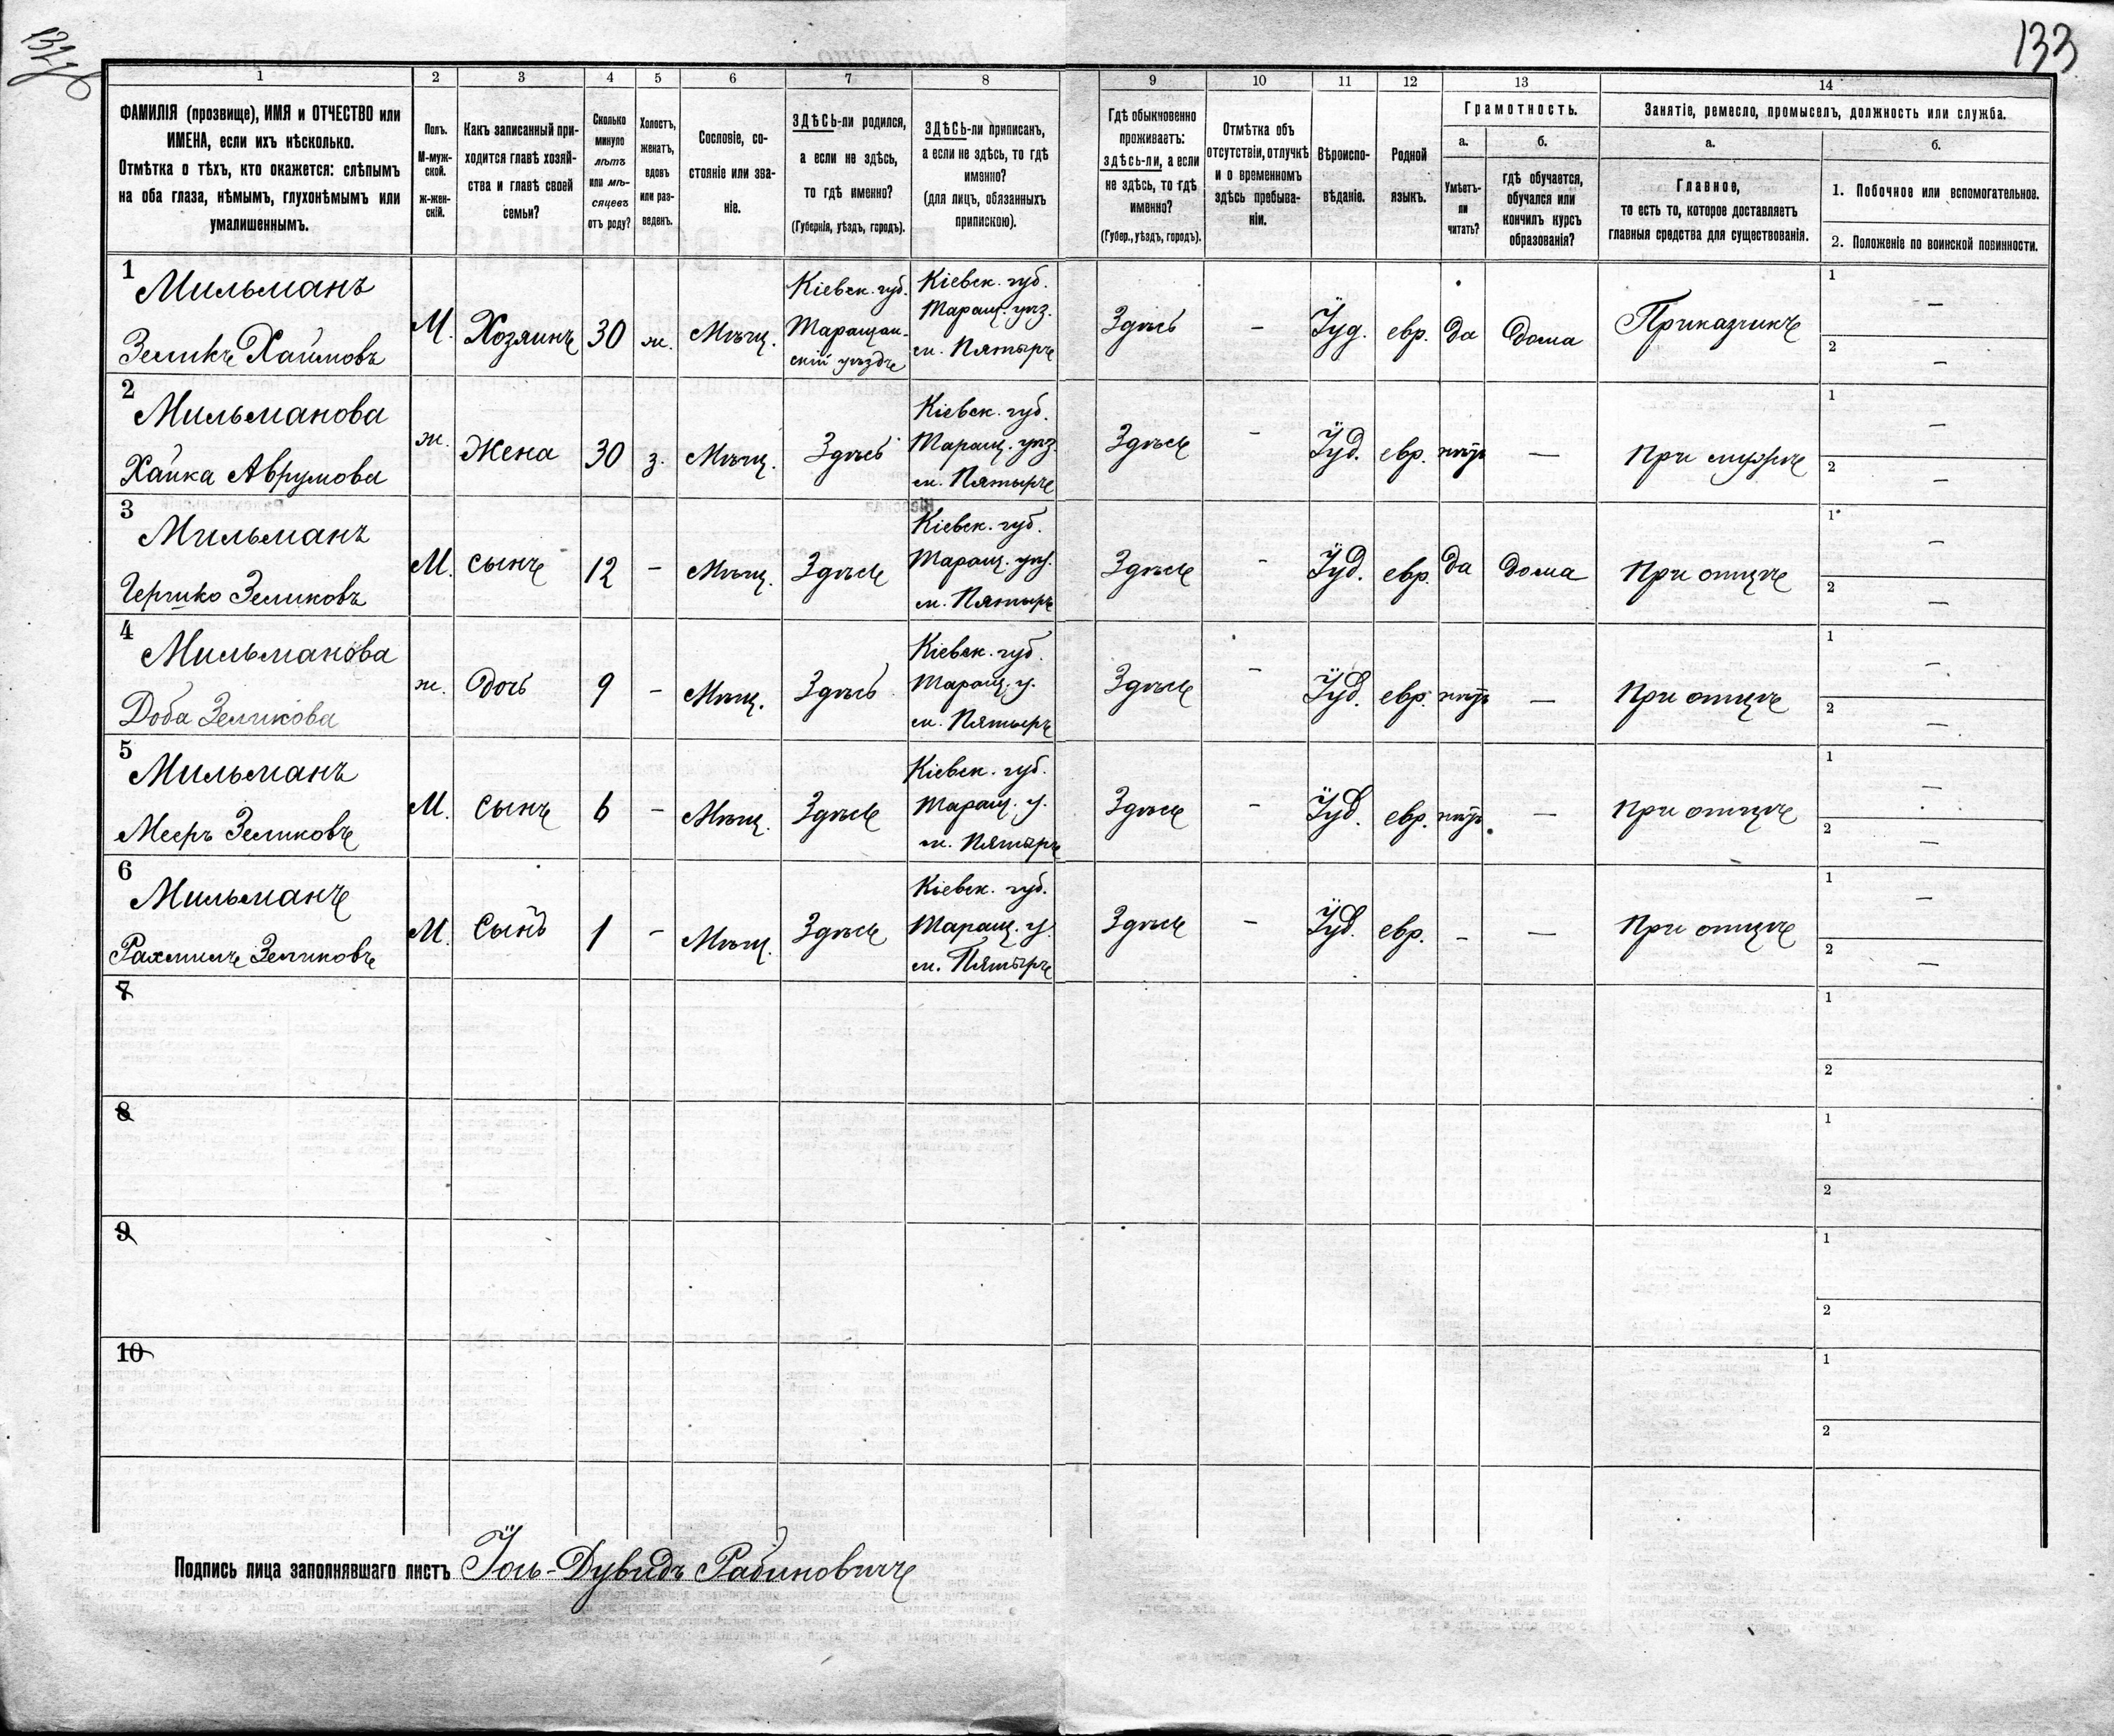 132об
133
1
2
3
4
5
6
7
8
9
10
11
12
13
14
ФАМИЛІЯ (прозвище), ИМЯ и ОТЧЕСТВО или
ИМЕНА, если ихъ нѣсколько.
Отмѣтка о тѣхъ, кто окажется: слѣпымъ
на оба глаза, нѣмымъ, глухонѣмымъ или
умалишеннымъ.
Полъ.
М-муж-
ской.
ж-жен-
скій.
Какъ записанный при-
ходится главѣ хозяй-
ства и главѣ своей
семьи?
Сколько
минуло
лѣтъ
или мѣ-
сяцевъ
отъ роду?
Холостъ,
женатъ,
вдовъ
или раз-
веденъ.
Сословіе, со-
стояніе или зва-
ніе.
ЗДѢСЬ-ли родился,
а если не здѣсь,
то гдѣ именно?
(Губернія, уѣздъ, городъ).
ЗДѢСЬ-ли приписанъ,
а если не здѣсь, то гдѣ
именно?
(для лицъ, обязанныхъ
припискою).
Гдѣ обыкновенно
проживаетъ:
здѣсь-ли, а если
не здѣсь, то гдѣ
именно?
(Губер., уѣздъ, городъ).
Отмѣтка объ
отсутствіи, отлучкѣ
и о временномъ
здѣсь пребыва-
ніи.
Вѣроиспо-
вѣданіе.
Родной
языкъ.
Грамотность.
а.
Умѣетъ-
ли
читать?
б.
гдѣ обучается,
обучался или
кончилъ курсъ
образованія?
Занятіе, ремесло, промыселъ, должность или служба.
а.
Главное,
то есть то, которое доставляетъ
главныя средства для существованія.
б.
1. Побочное или вспомогательное.
2. Положеніе по воинской повинности.
1
Мильманъ
Зеликъ Хаимовъ
М.
Хозяинъ
30
ж.
Мѣщ.
Кіевск. губ.
Таращан-
скій уѣздъ
Кіевск. губ.
Таращ. уѣз.
м. Пятыръ
Здѣсь
—
Іуд.
евр.
да
дома
Приказчикъ
1
—
2
—
2
Мильманова
Хайка Аврумова
ж.
Жена
30
з.
Мѣщ.
Здѣсь
Кіевск. губ.
Таращ. уѣз.
м. Пятыръ
Здѣсь
—
Іуд.
евр.
нѣтъ
—
При мужѣ
1
—
2
—
3
Мильманъ
Гершко Зеликовъ
М.
сынъ
12
—
Мѣщ.
Здѣсь
Кіевск. губ.
Таращ. уѣз.
м. Пятыръ
Здѣсь
—
Іуд.
евр.
да
дома
При отцѣ
1
—
2
—
4
Мильманова
Доба Зеликова
ж.
дочь
9
—
Мѣщ.
Здѣсь
Кіевск. губ.
Таращ. у.
м. Пятыръ
Здѣсь
—
Іуд.
евр.
нѣтъ
—
При отцѣ
1
—
2
—
5
Мильманъ
Мееръ Зеликовъ
М.
сынъ
6
—
Мѣщ.
Здѣсь
Кіевск. губ.
Таращ. у.
м. Пятыръ
Здѣсь
—
Іуд.
евр.
нѣтъ
—
При отцѣ
1
—
2
—
6
Мильманъ
Рахмилъ Зеликовъ
М.
Сынъ
1
—
Мѣщ.
Здѣсь
Кіевск. губ.
Таращ. у.
м. Пятыръ
Здѣсь
—
Іуд.
евр.
—
—
При отцѣ
1
—
2
—
7
1
2
8
1
2
9
1
2
10
1
2
Подпись лица заполнявшаго листъ Іоль-Дувидъ Рабиновичъ